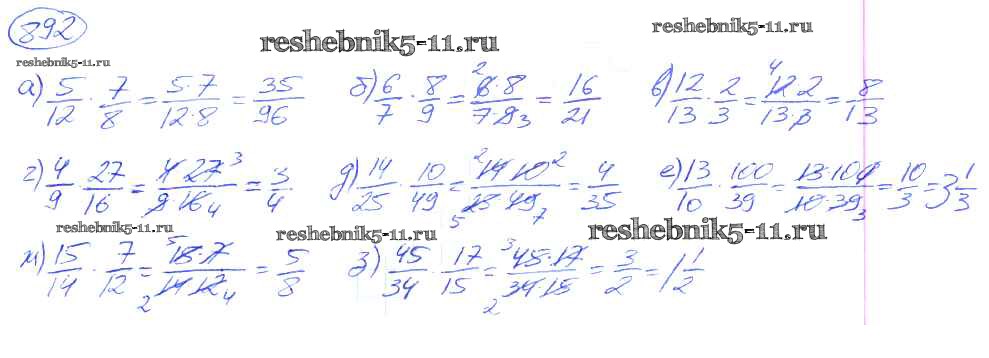 892
reshebnik5-11.ru reshebnik5-11.ru
reshebnik5-11.ru
а) 5/12 · 7/8 = 5·7/12·8 = 35/96 б) 6/7 · 8/9 = 2 6·8/7·9 3 = 16/21 в) 12/13 · 2/3 = 4 12·2/13·3 = 8/13
г) 4/9 · 27/16 = 4·27 3/9·16 4 = 3/4 д) 14/25 · 10/49 = 2 14·10 2/5 25·49 7 = 4/35 е) 13/10 · 100/39 = 13·100/10·39 3 = 10/3 = 3 1/3
reshebnik5-11.ru reshebnik5-11.ru reshebnik5-11.ru
ж) 15/14 · 7/12 = 5 15·7/2 14·12 4 = 5/8 з) 45/34 · 17/15 = 3 45·17/2 34·15 = 3/2 = 1 1/2